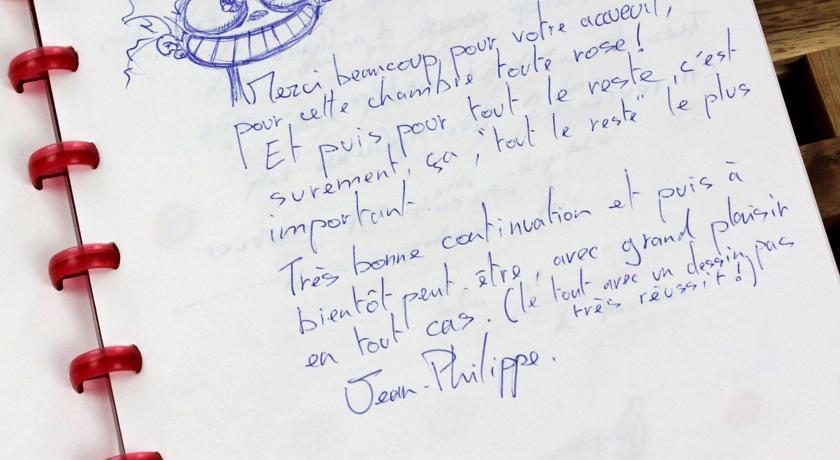 Merci beaucoup pour votre accueil,
pour cette chambre toute rose !
Et puis, pour tout le reste, c'est
surement, ça, "tout le reste" le plus
important.
Très bonne continuation et puis à
bientôt peut-être, avec grand plaisir
en tout cas. (le tout avec un dessin pas
très réussit !)
Jean-Philippe.